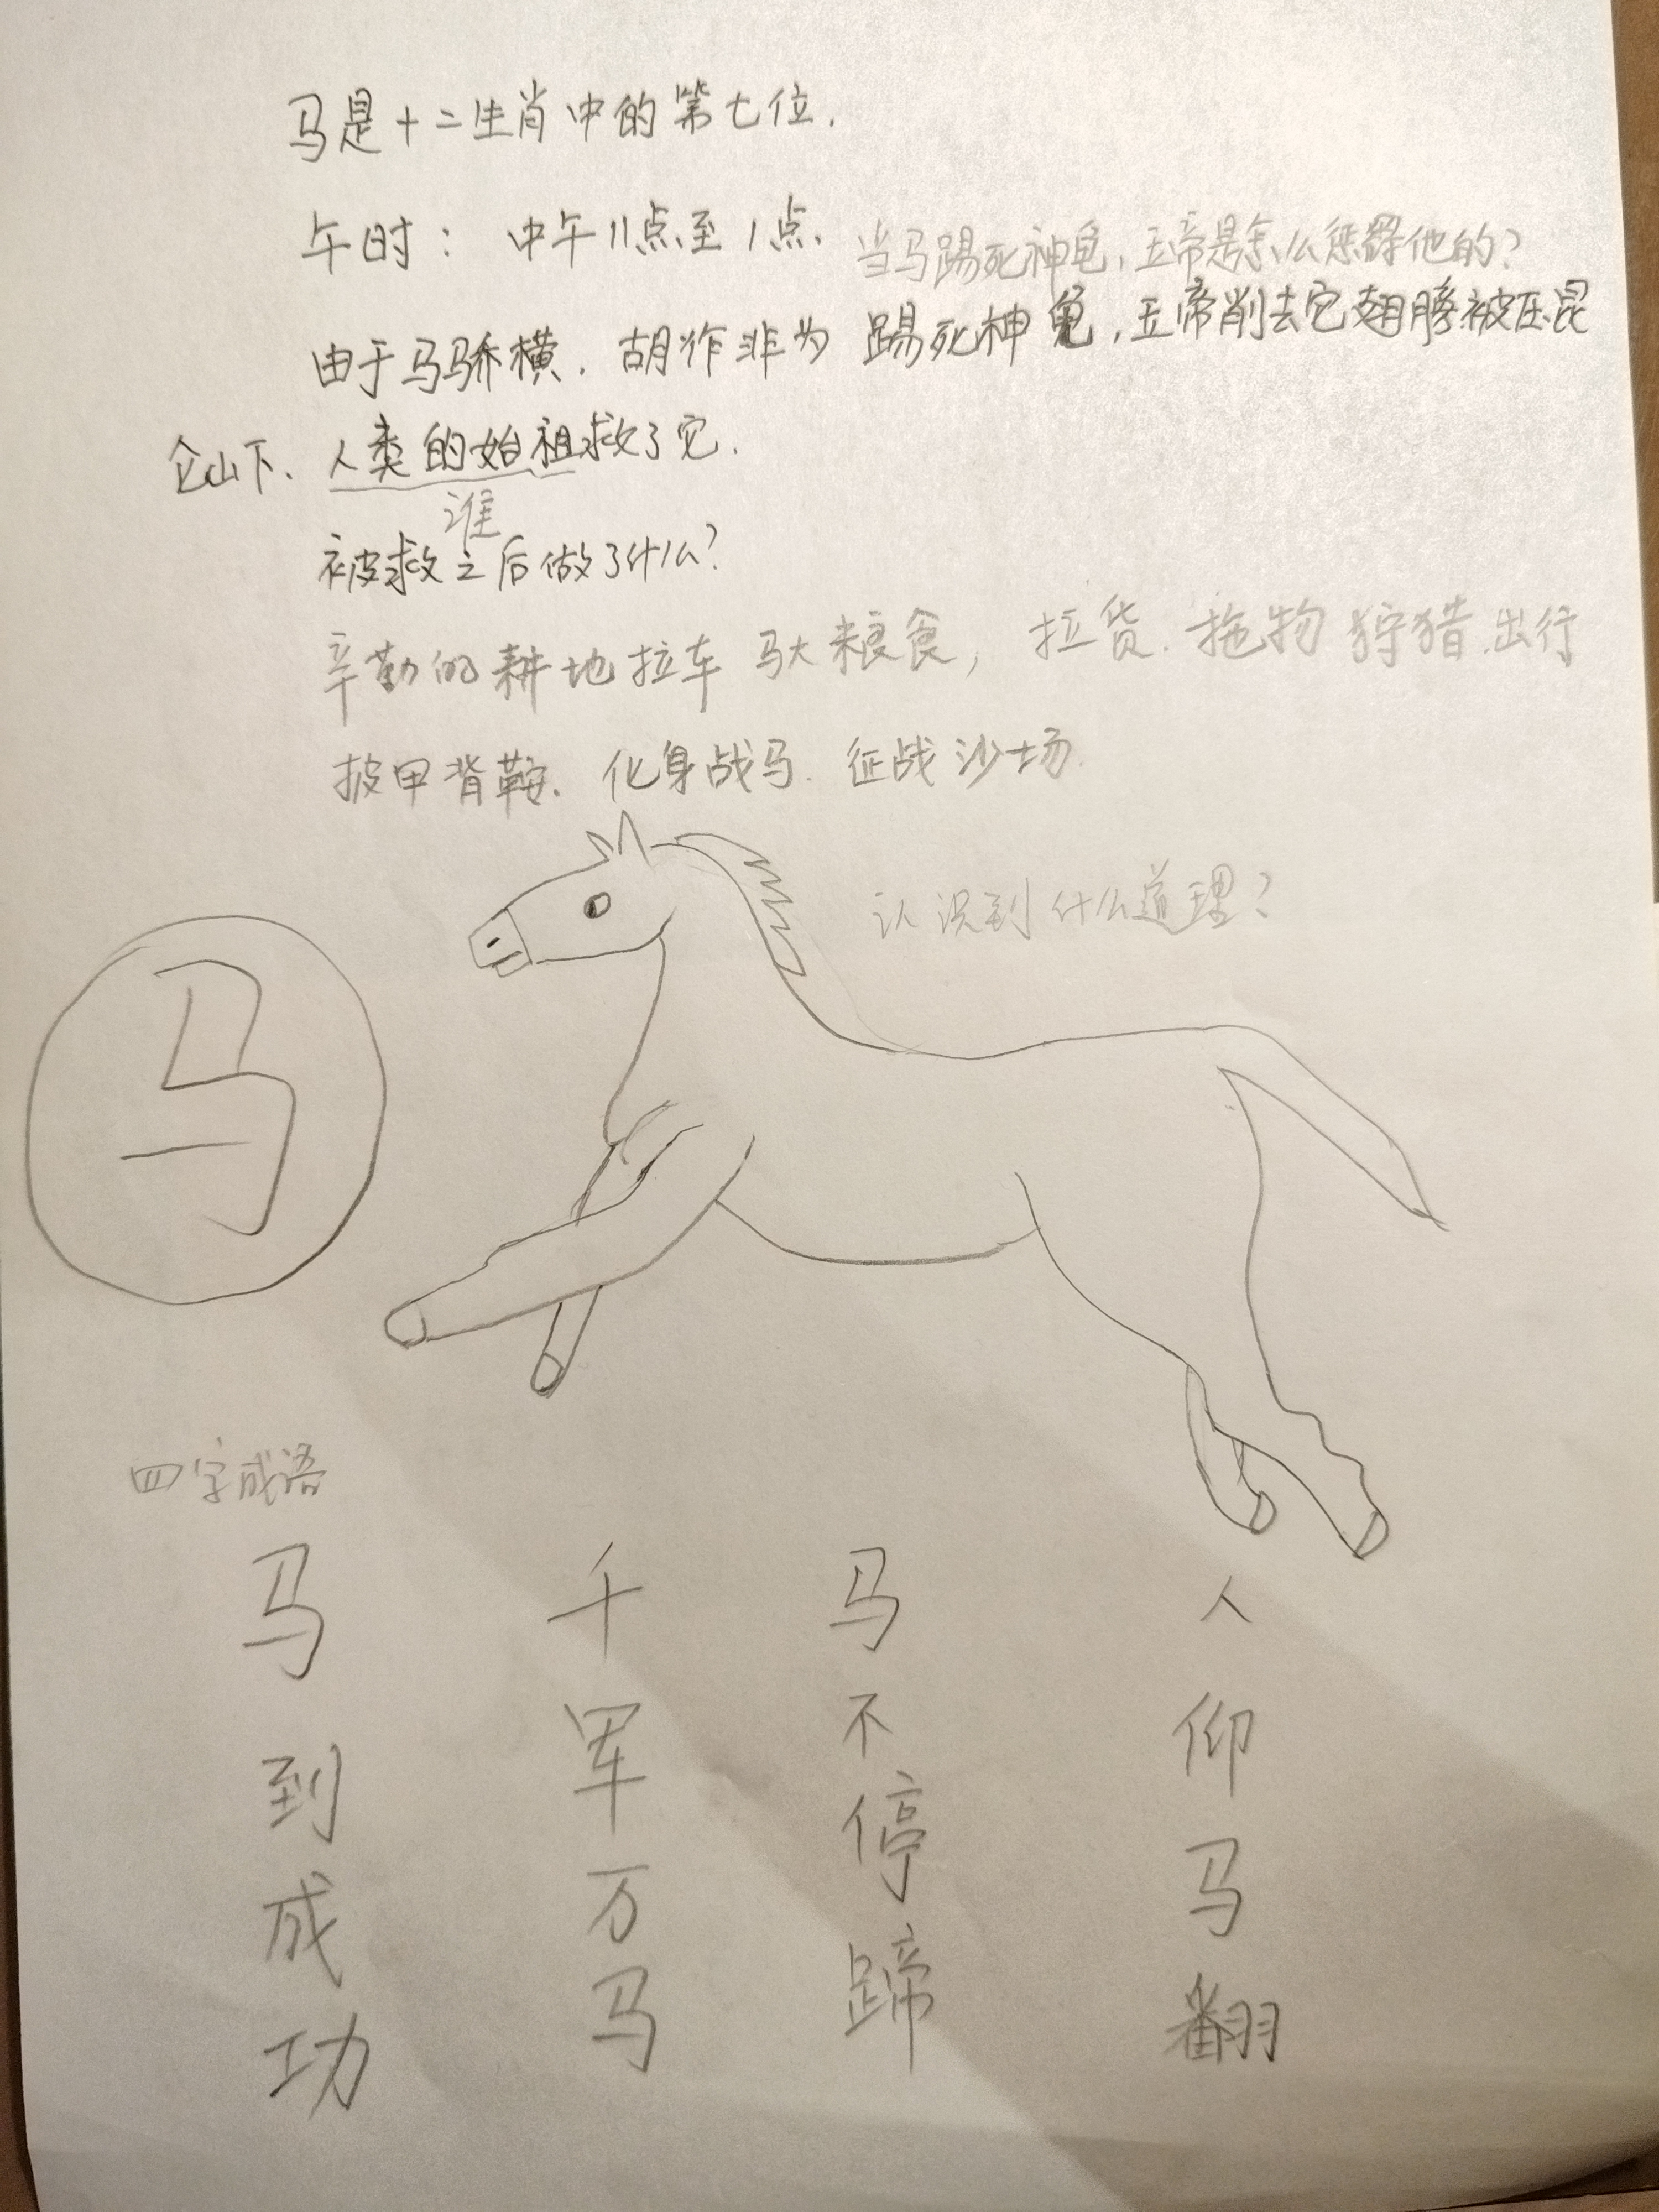 马是十二生肖中的第七位.
午时: 中午11点至1点.
当马踢死神龟,玉帝是怎么惩罚他的?
由于马骄横.胡作非为 踢死神龟,玉帝削去它翅膀被压昆
仑山下、人类的始祖救了它.
谁
被救之后做了什么?
辛勤的耕地拉车 驮粮食,拉货.拖物 狩猎.出行
披甲背鞍.化身战马.征战沙场.
认识到什么道理?
马
四字成语
马到成功
千军万马
马不停蹄
人仰马翻